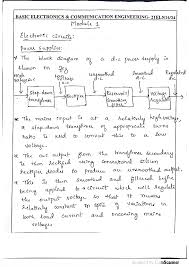 BASIC ELECTRONICS & COMMUNICATION ENGINEERING - 21ELN14/24
Module 1
Electronic Circuits:
Power Supplies:
• The block diagram of a d.c power supply is
shown in fig
unsmoothed smoothed Regulated
Step down transformer Rectifier Reservoir
• The mains input is at a relatively high voltage,
a step-down transformer of appropriate turns
ratio is used to convert this to a low
voltage.
• The ac output from the transformer secondary
is then rectified using conventional silicon
rectifier diodes to produce an unsmoothed output.
• This is then smoothed and filtered before
being applied to a circuit which will regulate
the output voltage so that it remains
relatively constant in spite of variations in
both load current and incoming mains
voltage.